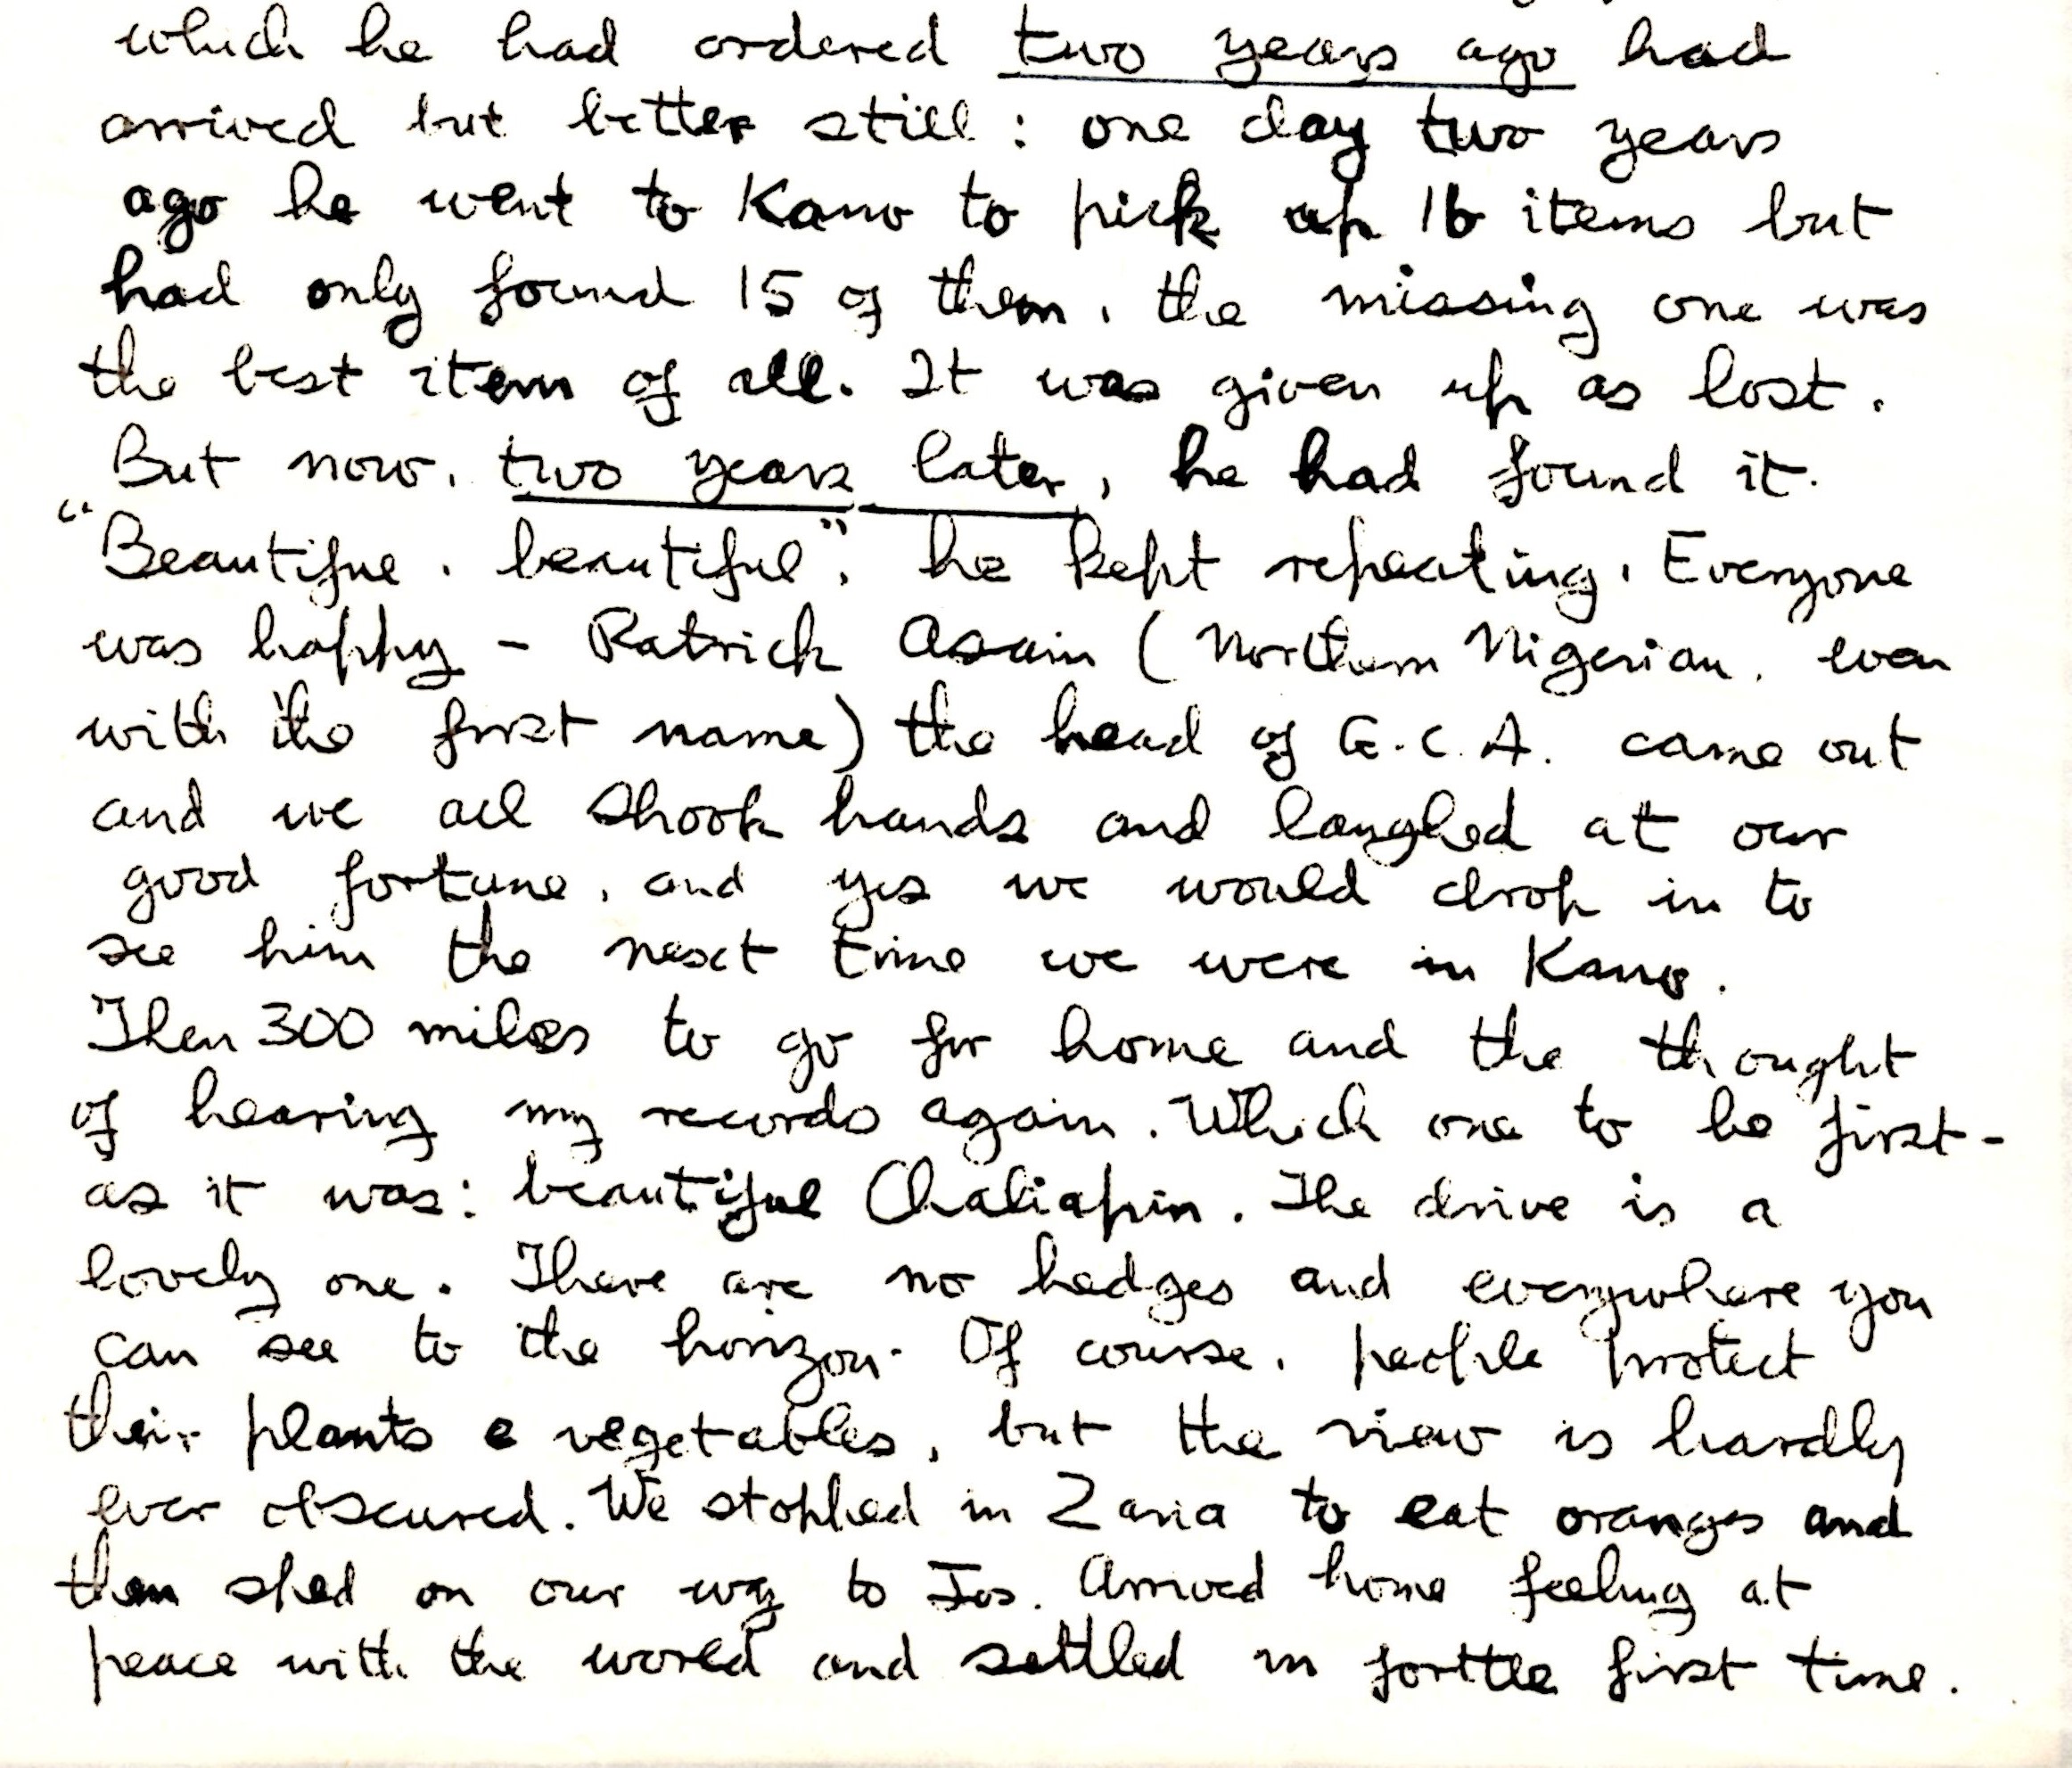 which he had ordered two years ago had
arrived but better still : one day two years
ago he went to Kano to pick up 16 items but
had only found 15 of them, the missing one was
the best item of all. It was given up as lost.
But now, two years later, he had found it.
"Beautiful, beautiful", he kept repeating. Everyone
was happy - Patrick (Northern Nigerian, even
with the first name) the head of G.C.A. came out
and we all shook hands and laughed at our
good fortune, and yes we would drop in to
see him the next time we were in Kano.
Then 300 miles to go for home and the thought
of hearing my records again. Which one to be first -
as it was: beautiful Chaliapin. The drive is a
lovely one. There are no hedges and everywhere you
can see to the horizon. Of course, people protect
their plants e vegetables, but the view is hardly
ever obscured. We stopped in Zaria to eat oranges and
then sped on our way to Jos. Arrived home feeling at
peace with the world and settled in for the first time.